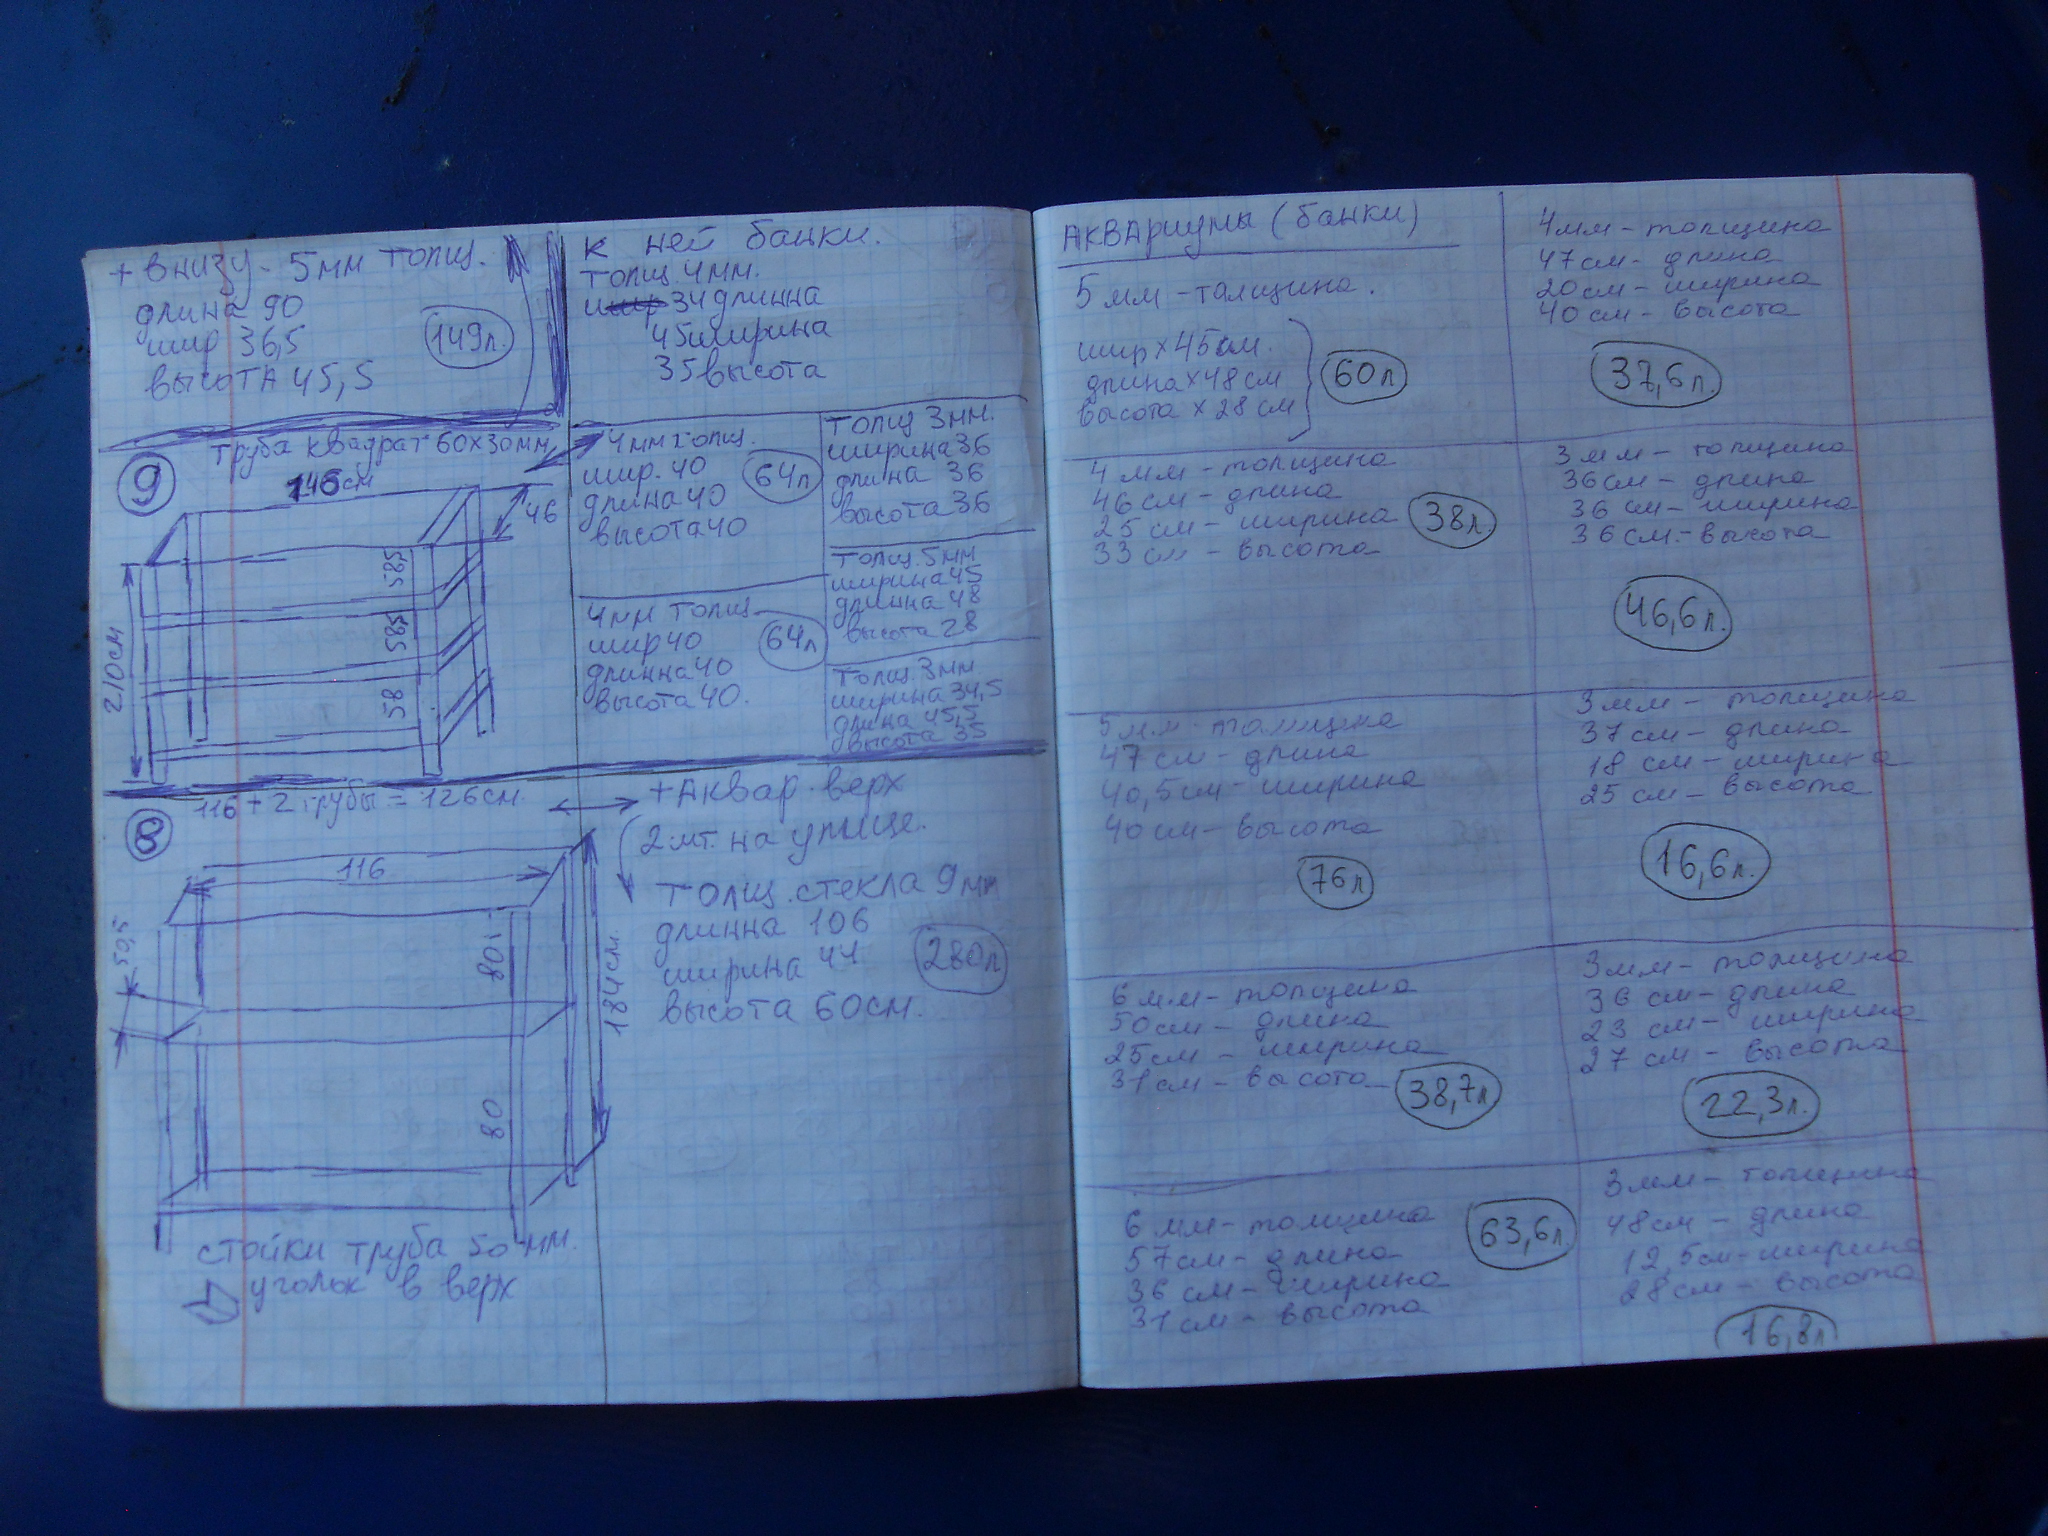 + внизу - 5мм толщ.
длина 90
шир 36,5
высота 45,5
149л.
к ней банки.
толщ 4мм.
34 длинна
45 ширина
35 высота
9
труба квадрат 60х30мм
146см
46
58,5
58,5
58
210см
4мм толщ.
шир. 40
длина 40
высота 40
64л
толщ 3мм.
ширина 36
длина 36
высота 36
4мм толщ.
шир 40
длинна 40
высота 40.
64л
толщ. 5мм
ширина 45
длинна 48
высота 28
толщ. 3мм
ширина 34,5
длина 45,5
высота 35
116 + 2 трубы = 126см.
8
116
50,5
80
80
184см.
+ Аквар. верх
2 шт. на улице.
толщ. стекла 9мм
длинна 106
ширина 44
высота 60см.
280л
стойки труба 50 мм.
уголок в верх
АКВАриумы (банки)
5 мм - талщина.
шир х 45см.
длина х 48см
высота х 28см
60л
4 мм - толщина
46см - длина
25см - ширина
33см - высота
38л.
5 м.м - толщина
47см - длина
40,5см - ширина
40см - высота
76л
6 м.м - толщина
50см - длина
25см - ширина
31см - высота
38,7л
6 мм - толщина
57см - длина
36см - ширина
31см - высота
63,6л
4мм - толщина
47см - длина
20см - ширина
40см - высота
37,6л.
3мм - толщина
36см - длина
36см - ширина
36см. - высота
46,6л.
3мм - толщина
37см - длина
18см - ширина
25см - высота
16,6л.
3мм - толщина
36см - длина
23см - ширина
27см - высота
22,3л.
3мм - толщина
48см - длина
12,5см - ширина
28см - высота
16,8л